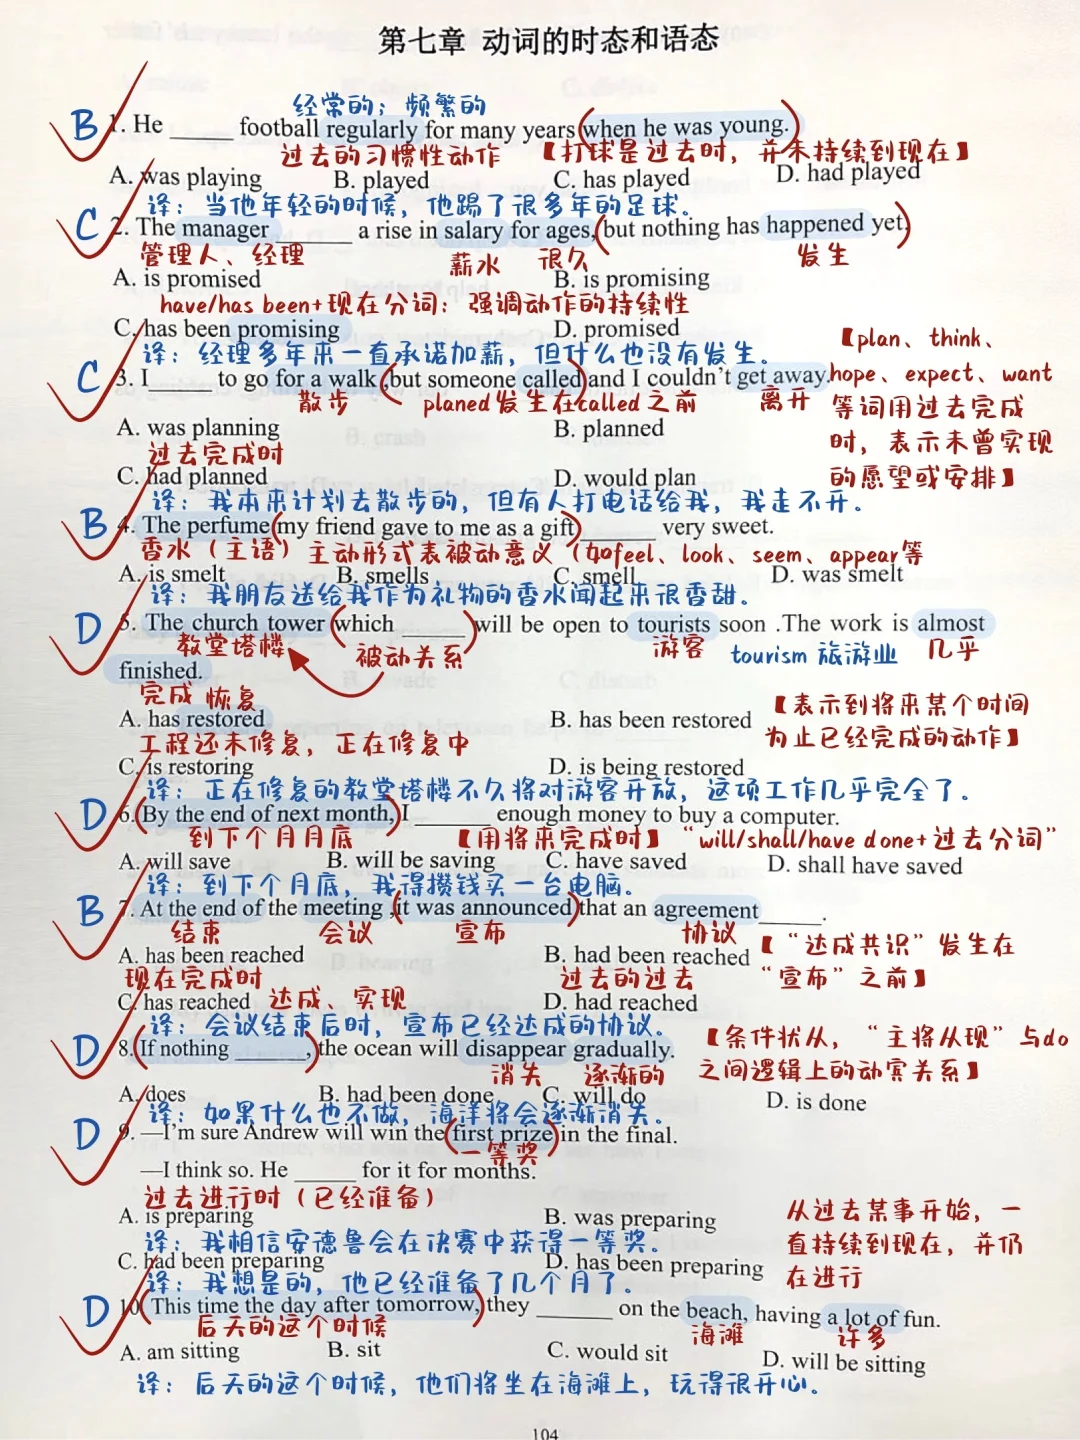 第七章 动词的时态和语态
经常的；频繁的
B 1. He ______ football regularly for many years (when he was young.)
过去的习惯性动作 【打球是过去时，并未持续到现在】
A. was playing B. played C. has played D. had played
译：当他年轻的时候，他踢了很多年的足球。
C 2. The manager ______ a rise in salary for ages, (but nothing has happened yet.)
管理人、经理 薪水 很久 发生
A. is promised B. is promising
have/has been+现在分词：强调动作的持续性
C. has been promising D. promised
译：经理多年来一直承诺加薪，但什么也没有发生。
【plan、think、
C 3. I ______ to go for a walk, (but someone called) and I couldn't get away.
hope、expect、want
散步 planed发生在called之前 离开
等词用过去完成
A. was planning B. planned
时，表示未曾实现
过去完成时
C. had planned D. would plan
的愿望或安排】
译：我本来计划去散步的，但有人打电话给我，我走不开。
B 4. The perfume (my friend gave to me as a gift) ______ very sweet.
香水（主语）主动形式表被动意义（如feel、look、seem、appear等
A. is smelt B. smells C. smell D. was smelt
译：我朋友送给我作为礼物的香水闻起来很香甜。
D 5. The church tower (which ______) will be open to tourists soon .The work is almost
教堂塔楼 被动关系 游客 tourism 旅游业 几乎
finished.
完成 恢复
A. has restored B. has been restored
【表示到将来某个时间
为止已经完成的动作】
工程还未修复，正在修复中
C. is restoring D. is being restored
译：正在修复的教堂塔楼不久将对游客开放，这项工作几乎完全了。
D 6. (By the end of next month,) I ______ enough money to buy a computer.
到下个月月底 【用将来完成时】“will/shall/have done+过去分词”
A. will save B. will be saving C. have saved D. shall have saved
译：到下个月底，我得攒钱买一台电脑。
B 7. At the end of the meeting ,(it was announced) that an agreement ______.
结束 会议 宣布 协议
A. has been reached B. had been reached
【“达成共识”发生在
“宣布”之前】
现在完成时 过去的过去
C. has reached 达成、实现 D. had reached
译：会议结束后时，宣布已经达成的协议。
D 8. (If nothing ______,) the ocean will disappear gradually.
【条件状从，“主将从现”与do
之间逻辑上的动宾关系】
消失 逐渐的
A. does B. had been done C. will do D. is done
译：如果什么也不做，海洋将会逐渐消失。
D 9. —I'm sure Andrew will win the (first prize) in the final.
一等奖
—I think so. He ______ for it for months.
过去进行时（已经准备）
A. is preparing B. was preparing
从过去某事开始，一
直持续到现在，并仍
在进行
译：我相信安德鲁会在决赛中获得一等奖。
C. had been preparing D. has been preparing
译：我想是的，他已经准备了几个月了。
D 10. (This time the day after tomorrow,) they ______ on the beach, having a lot of fun.
后天的这个时候 海滩 许多
A. am sitting B. sit C. would sit D. will be sitting
译：后天的这个时候，他们将坐在海滩上，玩得很开心。
104